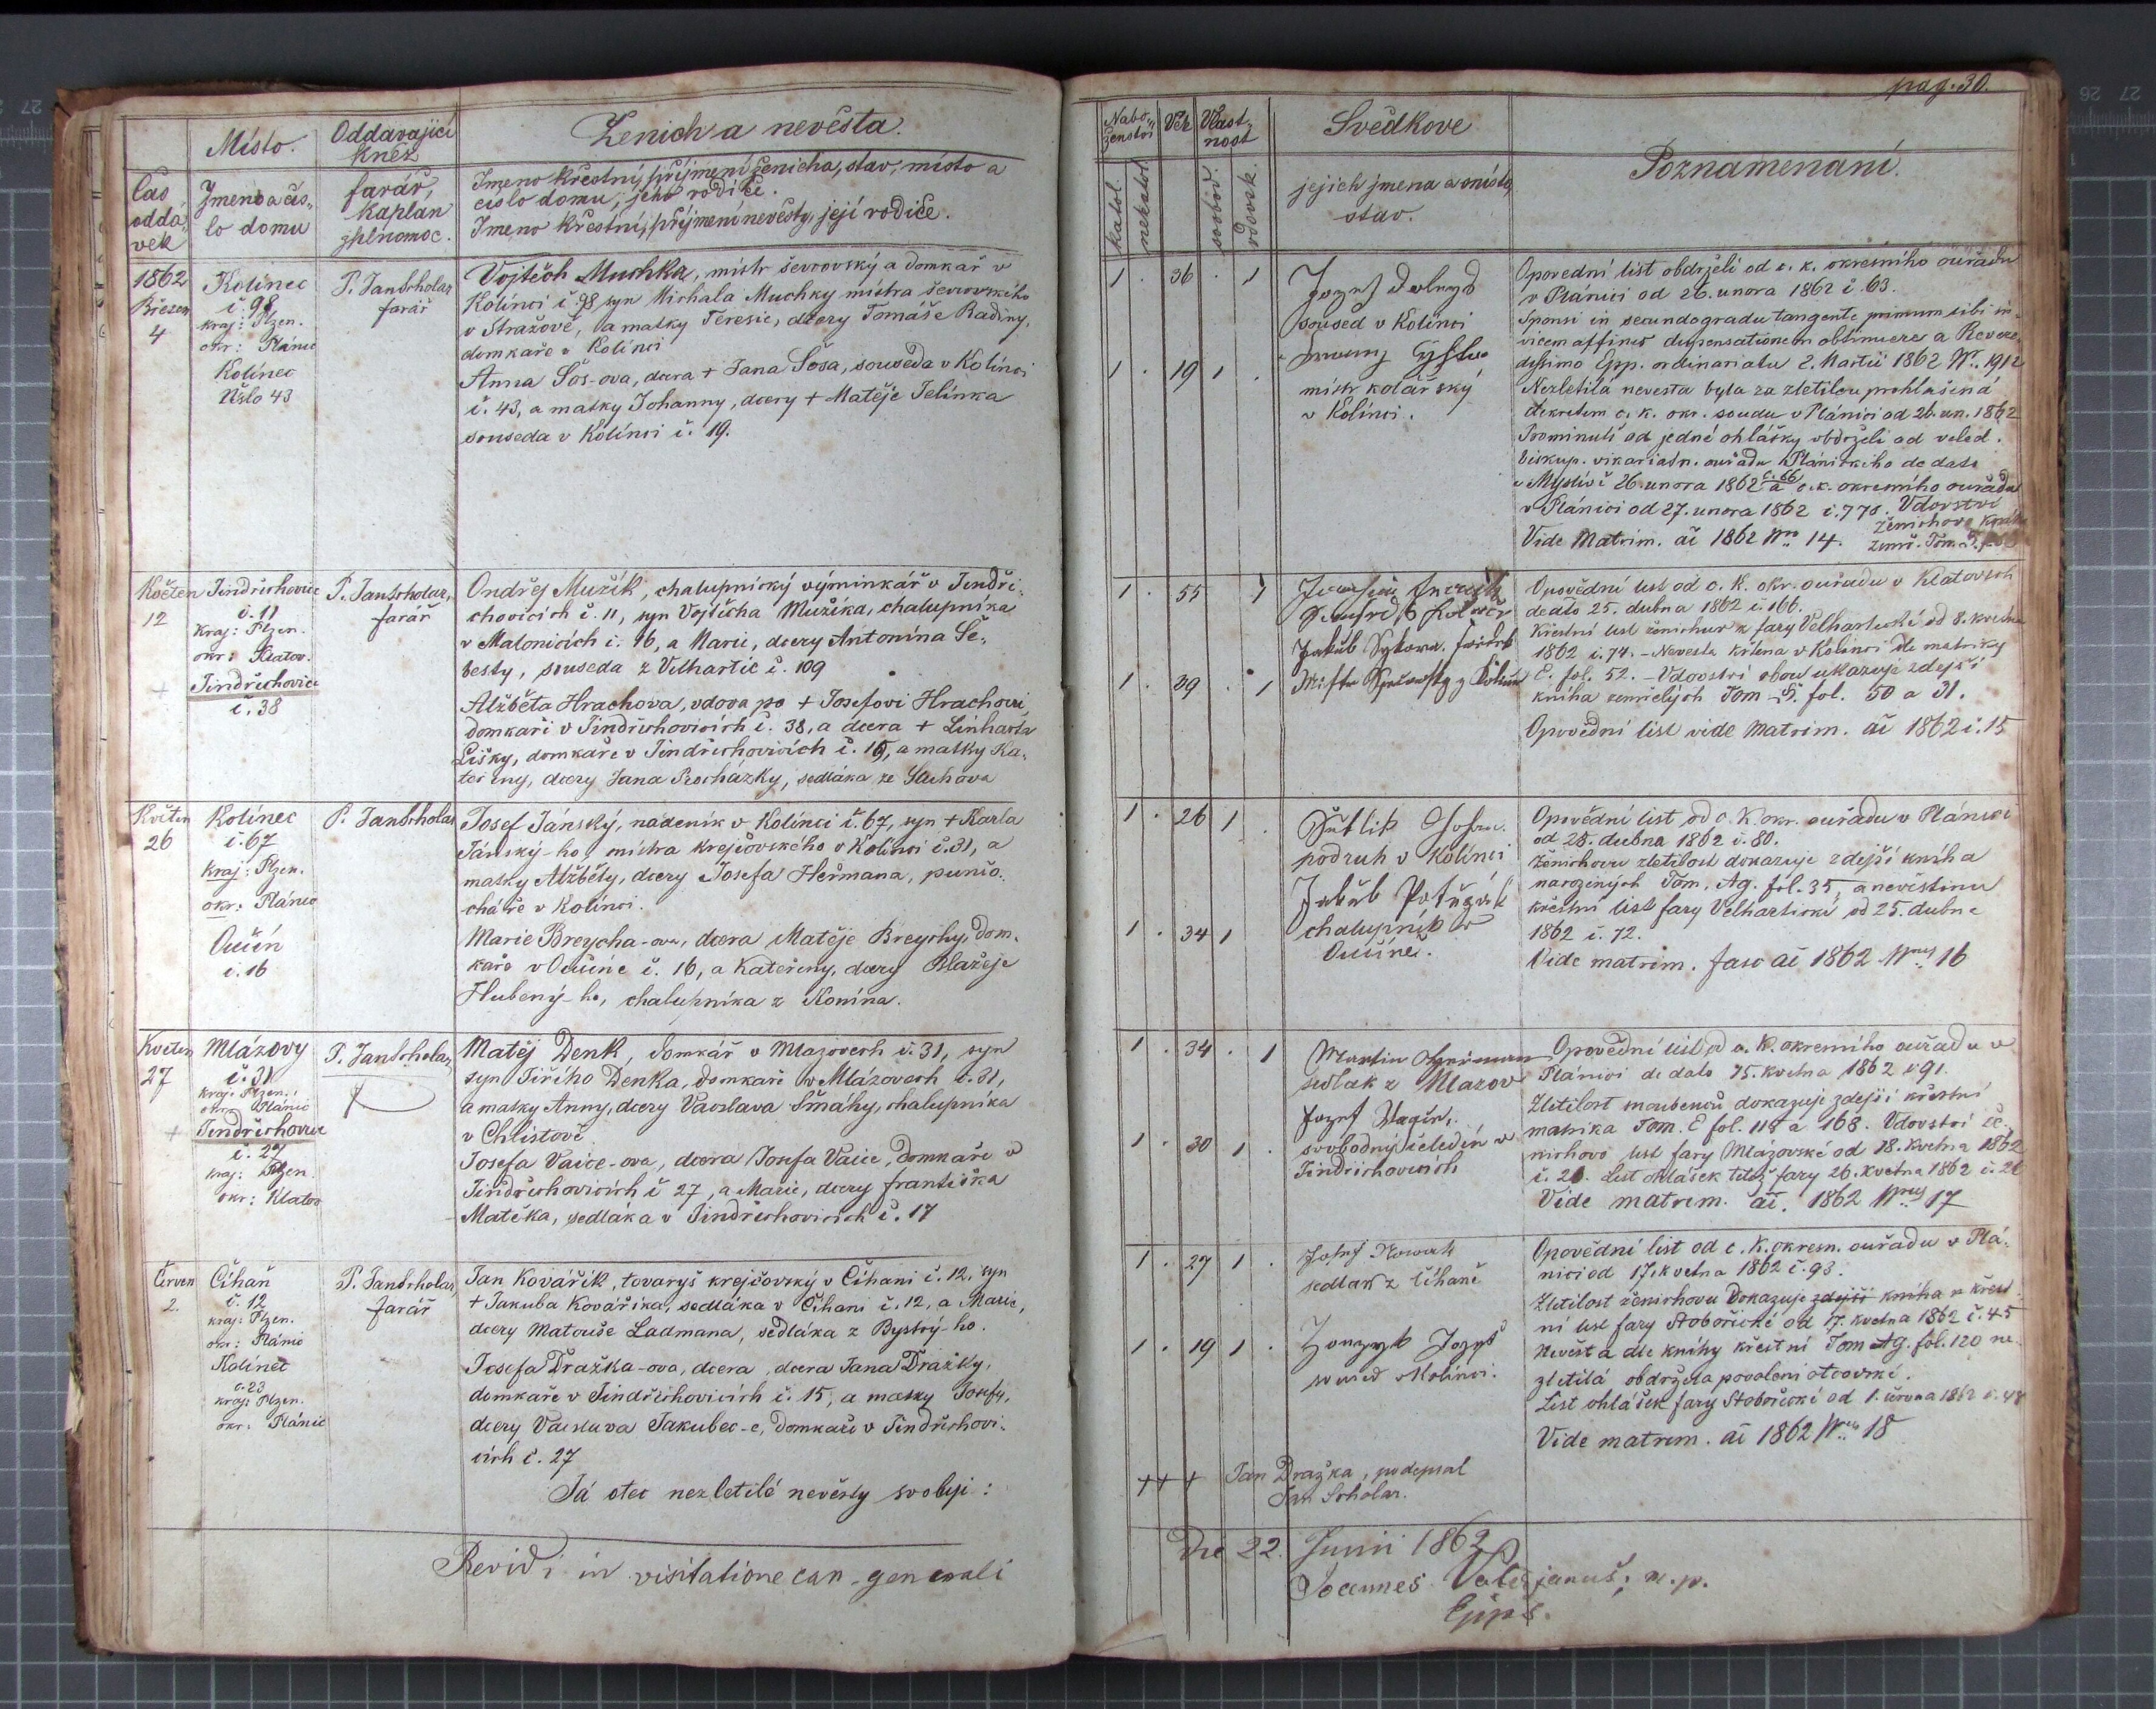 pag. 30.
Místo.
Oddavající
kněz
Ženich a nevěsta.
Čas
oddá-
vek
Jmeno a čís-
lo domu
farář,
kaplan
zplnomoc.
Jmeno křestní, příjmení ženicha, stav, místo a
číslo domu, jeho rodiče.
Jmeno křestní, příjmení nevěsty, její rodiče.
Nabo-
ženství
Věk
Vlast-
nost
Svědkove
Poznamenaní.
katol.
nekatol.
svobod.
vdovsk.
jejich jmena a
stav.
1862
Březen
4
Kolínec
č. 98
kraj: Plzen.
okr: Plánic
Kolínec
Číslo 43
P. Jan Scholar
farář
Vojtěch Muchka, mistr ševcovský a domkař v
Kolínci č. 98 syn Michala Muchky mistra ševcovského
v Stražově, a matky Teresie, dcery Tomáše Radiny,
domkaře v Kolínci
Anna Šos-ova, dcera + Jana Šosa, souseda v Kolínci
č. 43, a matky Johanny, dcery + Matěje Jelínka
souseda v Kolínci č. 19.
1 . 36 . 1
soused v Kolínci
1 . 19 1 .
mistr kolářský
v Kolínci.
Opovední list obdrželi od c. k. okresního ouřadu
v Plánici od 26. unora 1862 č. 63.
Sponsi in secundo gradu tangente primum sibi in-
vicem affines dispensationem obtinuere a Reveren-
dissimo Epp. ordinariatu 2. Martii 1862 Nr. 1912
Nezletilá nevesta byla za zletilou prohlašená
dekretem c. k. okr. soudu v Plánici od 26. un. 1862
Prominutí od jedné ohlášky obdrželi od veled.
biskup. vikariatn. ouřadu Plánického de dato
Myslív 26. unora 1862 č. 66 a c. k. okresního ouřadu
v Plánici od 27. unora 1862 č. 770. Vdovství
ženichovo
Vide Matrim. ai 1862 Nro 14.
Květen
12
Jindřichovic
č. 11
kraj: Plzen.
okr: Klatov.
+ Jindřichovice
č. 38
P. Jan Scholar,
farář
Ondřej Mužík, chalupnický výminkář v Jindři-
chovicích č. 11, syn Vojtěcha Mužíka, chalupníka
v Malonicích č. 16, a Marie, dcery Antonína Še-
besty, souseda z Velhartic č. 109
Alžběta Hrachova, vdova po + Josefovi Hrachovi
domkaři v Jindřichovicích č. 38, a dcera + Linharta
Lišky, domkaře v Jindřichovicích č. 15, a matky Ka-
teřiny, dcery Jana Procházky, sedláka ze
1 . 55 . 1
Jakub Sykora.
1 . 39 . 1
Opovědní list od c. k. okr. ouřadu v Klatovech
de dato 25. dubna 1862 č. 166.
Křestní list ženichův z fary Velhartické od 8. května
1862 č. 74. – Nevesta křtena v Kolínci dle matriky
E. fol. 52. – Vdovství obou ukazuje zdejší
kniha zemřelých Tom – fol. 50 a 31.
Opovědní list vide Matrim. ai 1862 č. 15
Květen
26
Kolínec
č. 67
kraj: Plzen.
okr: Plánic
Oučín
č. 16
P. Jan Scholar
Josef Jánský, nádeník v Kolínci č. 67, syn + Karla
Jánský-ho, mistra krejčovského v Kolínci č. 31, a
matky Alžběty, dcery Josefa Heřmana, punčo-
cháře v Kolínci.
Marie Breycha-ova, dcera Matěje Breychy, dom-
kaře v Oučíně č. 16, a Kateřiny, dcery Blažeje
Hubený-ho, chalupníka z Konína.
1 . 26 1 .
podruh v Kolínci
1 . 34 1
chalupník v
Oučíně.
Opovědní list od c. k. okr. ouřadu v Plánici
od 25. dubna 1862 č. 80.
Ženichovu zletilost dokazuje zdejší kniha
narozených Tom. Ag. fol. 35, a nevěstinu
křestní list fary Velhartické od 25. dubna
1862 č. 72.
Vide matrim. fasc ai 1862 Nrus 16
Květen
27
Mlázovy
č. 31
kraj: Plzen.
okr: Plánic
+ Jindřichovice
č. 27
kraj: Plzen.
okr: Klatov
P. Jan Scholar,
Matěj Denk, domkář v Mlazovech č. 31, syn
syn Jiřího Denka, domkaře v Mlázovech č. 31,
a matky Anny, dcery Vacslava Šmáhy, chalupníka
v Chlistově
Josefa Vaice-ova, dcera Josefa Vaice, domkaře v
Jindřichovicích č 27, a Marie, dcery františka
Matěka, sedláka v Jindřichovicích č. 17
1 . 34 . 1
Martin
sedlak z Mlazov
1 . 30 1 .
svobodný čeledín v
Jindřichovicích
Opovědní list od c. k. okresního ouřadu v
Plánici de dato 15. května 1862 č 91.
Zletilost snoubenců dokazuje zdejší křestní
matrika Tom. E fol. 118 a 168. Vdovství že-
nichovo list fary Mlázovské od 18. května 1862
č. 20. List ohlášek tetéž fary 26. května 1862 č. 21
Vide matrim. ai. 1862 Nrus 17
Červen
2.
Číhaň
č. 12
kraj: Plzen.
okr: Plánic
Kolínec
č. 23
kraj: Plzen.
okr: Plánic
P. Jan Scholar,
farář
Jan Kovářík, tovaryš krejčovský v Číhani č. 12, syn
+ Jakuba Kováříka, sedláka v Číhani č. 12, a Marie,
dcery Matouše Ladmana, sedláka z Bystrý-ho.
Josefa Dražka-ova, dcera, dcera Jana Dražky,
domkaře v Jindřichovicích č. 15, a matky Josefy,
dcery Vacslava Jakubec-e, domkaře v Jindřichovi-
cích č. 27
Já otec nezletilé nevěsty svoluji:
1 . 27 1 .
Josef Nowak
sedlak z Číhaně
1 . 19 1 .
soused v Kolínci.
+++ Jan Dražka, podepsal
Jan Scholar.
Opovědní list od c. k. okresn. ouřadu v Plá-
nici od 17. května 1862 č. 93.
Zletilost ženichovu dokazuje zdejší kniha křest-
ní list fary Stobořické od 17. května 1862 č. 45
Nevěsta dle knihy křestní Tom Ag. fol. 120 ne-
zletilá obdržela povolení otcovské.
List ohlášek fary Stobořické od 1. června 1862 č. 48
Vide matrim. ai 1862 Nrus 18
Revidi in visitatione can. generali
Die 22. Junii 1862
Joannes Valerjanus, m. p.
Eppus.